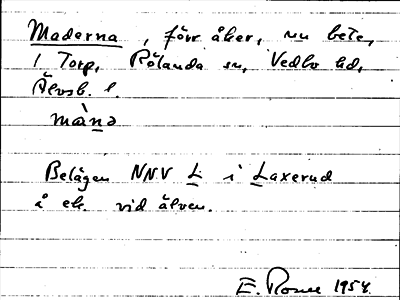 Maderna, förr åker, nu bete,
1 Torp, Rölanda sn, Vedbo hd,
Älvsb. l.
mànə
Belägen NNV L i Laxerud
å ek. vid älven.
E. 1954.